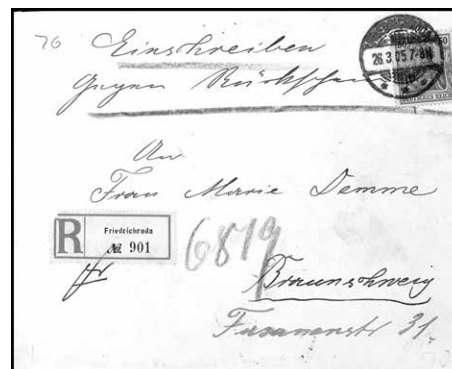 70
Einschreiben
gegen Rückschein
26.3.05.7-8N
50
DEUTSCHES REICH
An
Frau Marie Demme
R
Friedrichroda
№ 901
6819
Braunschweig
Fasanenstr 31.